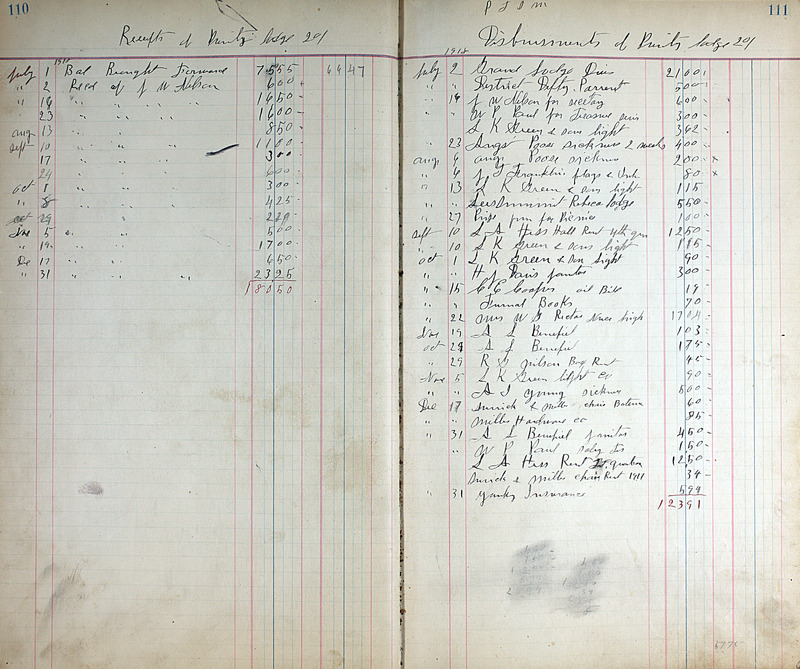 110
Receipts of Purity lodge 29/
1918
July 1 Bal Brought Forward 7555 6447
" 2 Recd of J W Nelson 600
" 16 " " " 1650
" 23 " " " 1600
Aug 13 " " " 850
Sept 10 " " " 1100
" 17 " " " 300
" 24 " " " 600
Oct 1 " " " 300
" 8 " " " 425
Oct 29
Nov 5 " " 500
" 19 " " 1700
De 17 " " 450
" 31 " " " 2325
18050
111
P I O M
Disbursments of Purity lodge 29/
1918
July 2 Grand Lodge Dues 2100
" " District Depty Parrent 500
" 16 J W Nelson for 600
" " W P Paul for 300
L K Green & Sons light 362
" 23 Angst Poose sickness 2 weeks 400
Aug 6 Angst Poose sickness 200 x
" 6 J T flags & 80 x
" 13 L K Green & Sons light 115
" " Leesummit Rebeca Lodge 550
" 27 for Picnic 100
Sept 10 L A Hess Hall Rent 4th qur 1250
" 10 L K Green & Sons light 115
Oct 1 L K Green & Son light 90
" " H J Davis janitor 300
" 15 C C Cooper oil Bill 19
" " Journal Books 70
" 22 Mrs W S 1704
Nov 19 A L Benefiel 103
Oct 29 A L Benefiel 175
" 29 R S Box Rent 45
Nov 5 L K Green light co 90
" " A J Young sickness 500
De 17 & Miller chair 60
" " Miller Hardware co 85
" 31 A L Benefiel janitor 450
" W P Paul 150
L A Hess Rent quarter 1250
& Miller chair Rent 1911 34
" 31 Insurance 599
12391